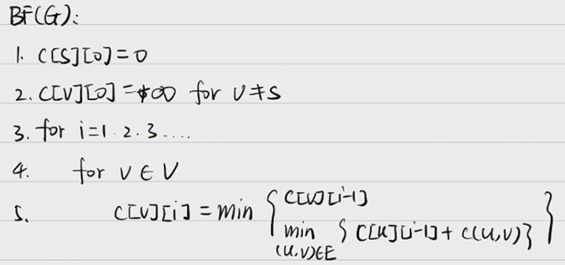 BF(G):
1. C[S][0]=0
2. C[V][0]=+∞ for v≠s
3. for i=1.2.3....
4. for v∈V
5. C[V][i]=min { C[V][i-1]
min { C[u][i-1]+c(u,v)} }
(u,v)∈E